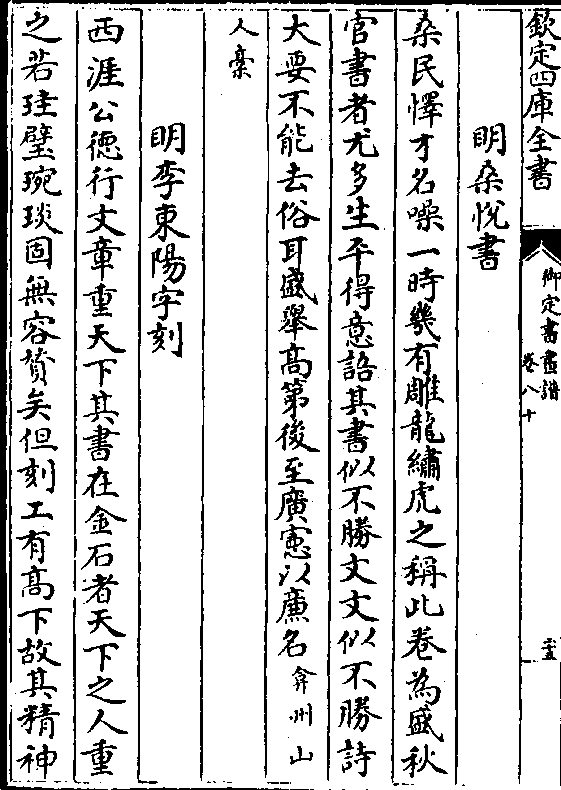 欽定四庫全書
御定書畫譜
卷八十
二十五
明桑悅書
桑民懌才名噪一時幾有雕龍繡虎之稱此卷為盛秋
官書者尤多生平得意語其書似不勝文文似不勝詩
大要不能去俗耳盛舉高第後至廣憲以廉名弇州山
人稾
明李東陽字刻
西涯公德行文章重天下其書在金石者天下之人重
之若珪璧琬琰固無容贊矣但刻工有高下故其精神